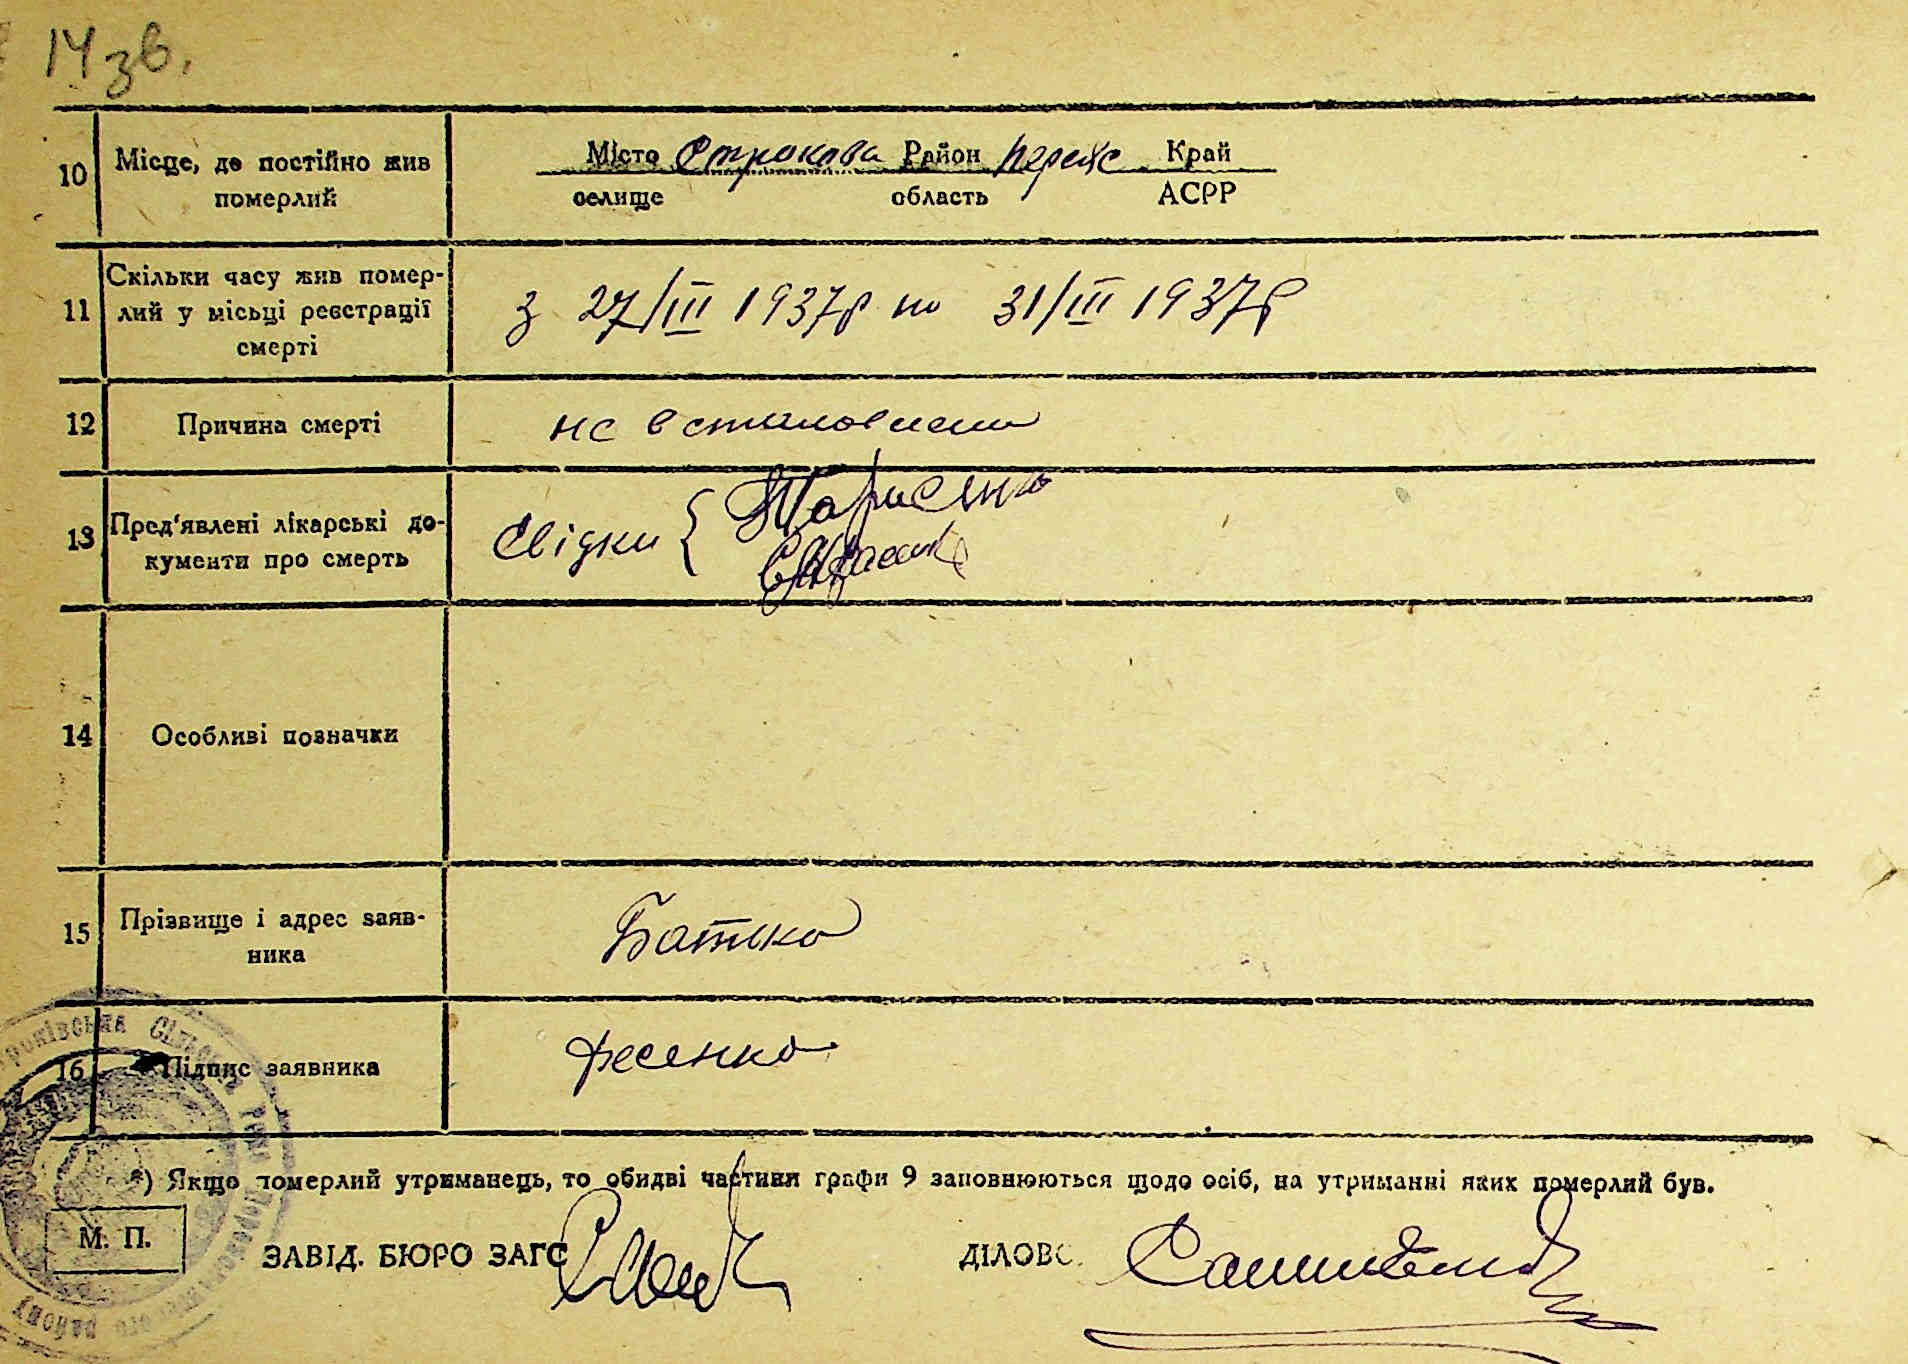 14 зв.
10 Місце, де постійно жив померлий
Місто Строкова Район Переяс Край
селище область АСРР
11 Скільки часу жив помер-
лий у місьці реєстрації
смерті
з 27/III 1937р по 31/III 1937р
12 Причина смерті
не встановлена
13 Пред'явлені лікарські до-
кументи про смерть
Свідки {
14 Особливі позначки
15 Прізвище і адрес заяв-
ника
Батько
16 Підпис заявника
Фесенко
*) Якщо померлий утриманець, то обидві частини графи 9 заповнюються щодо осіб, на утриманні яких померлий був.
М. П.
ЗАВІД. БЮРО ЗАГС
ДІЛОВ